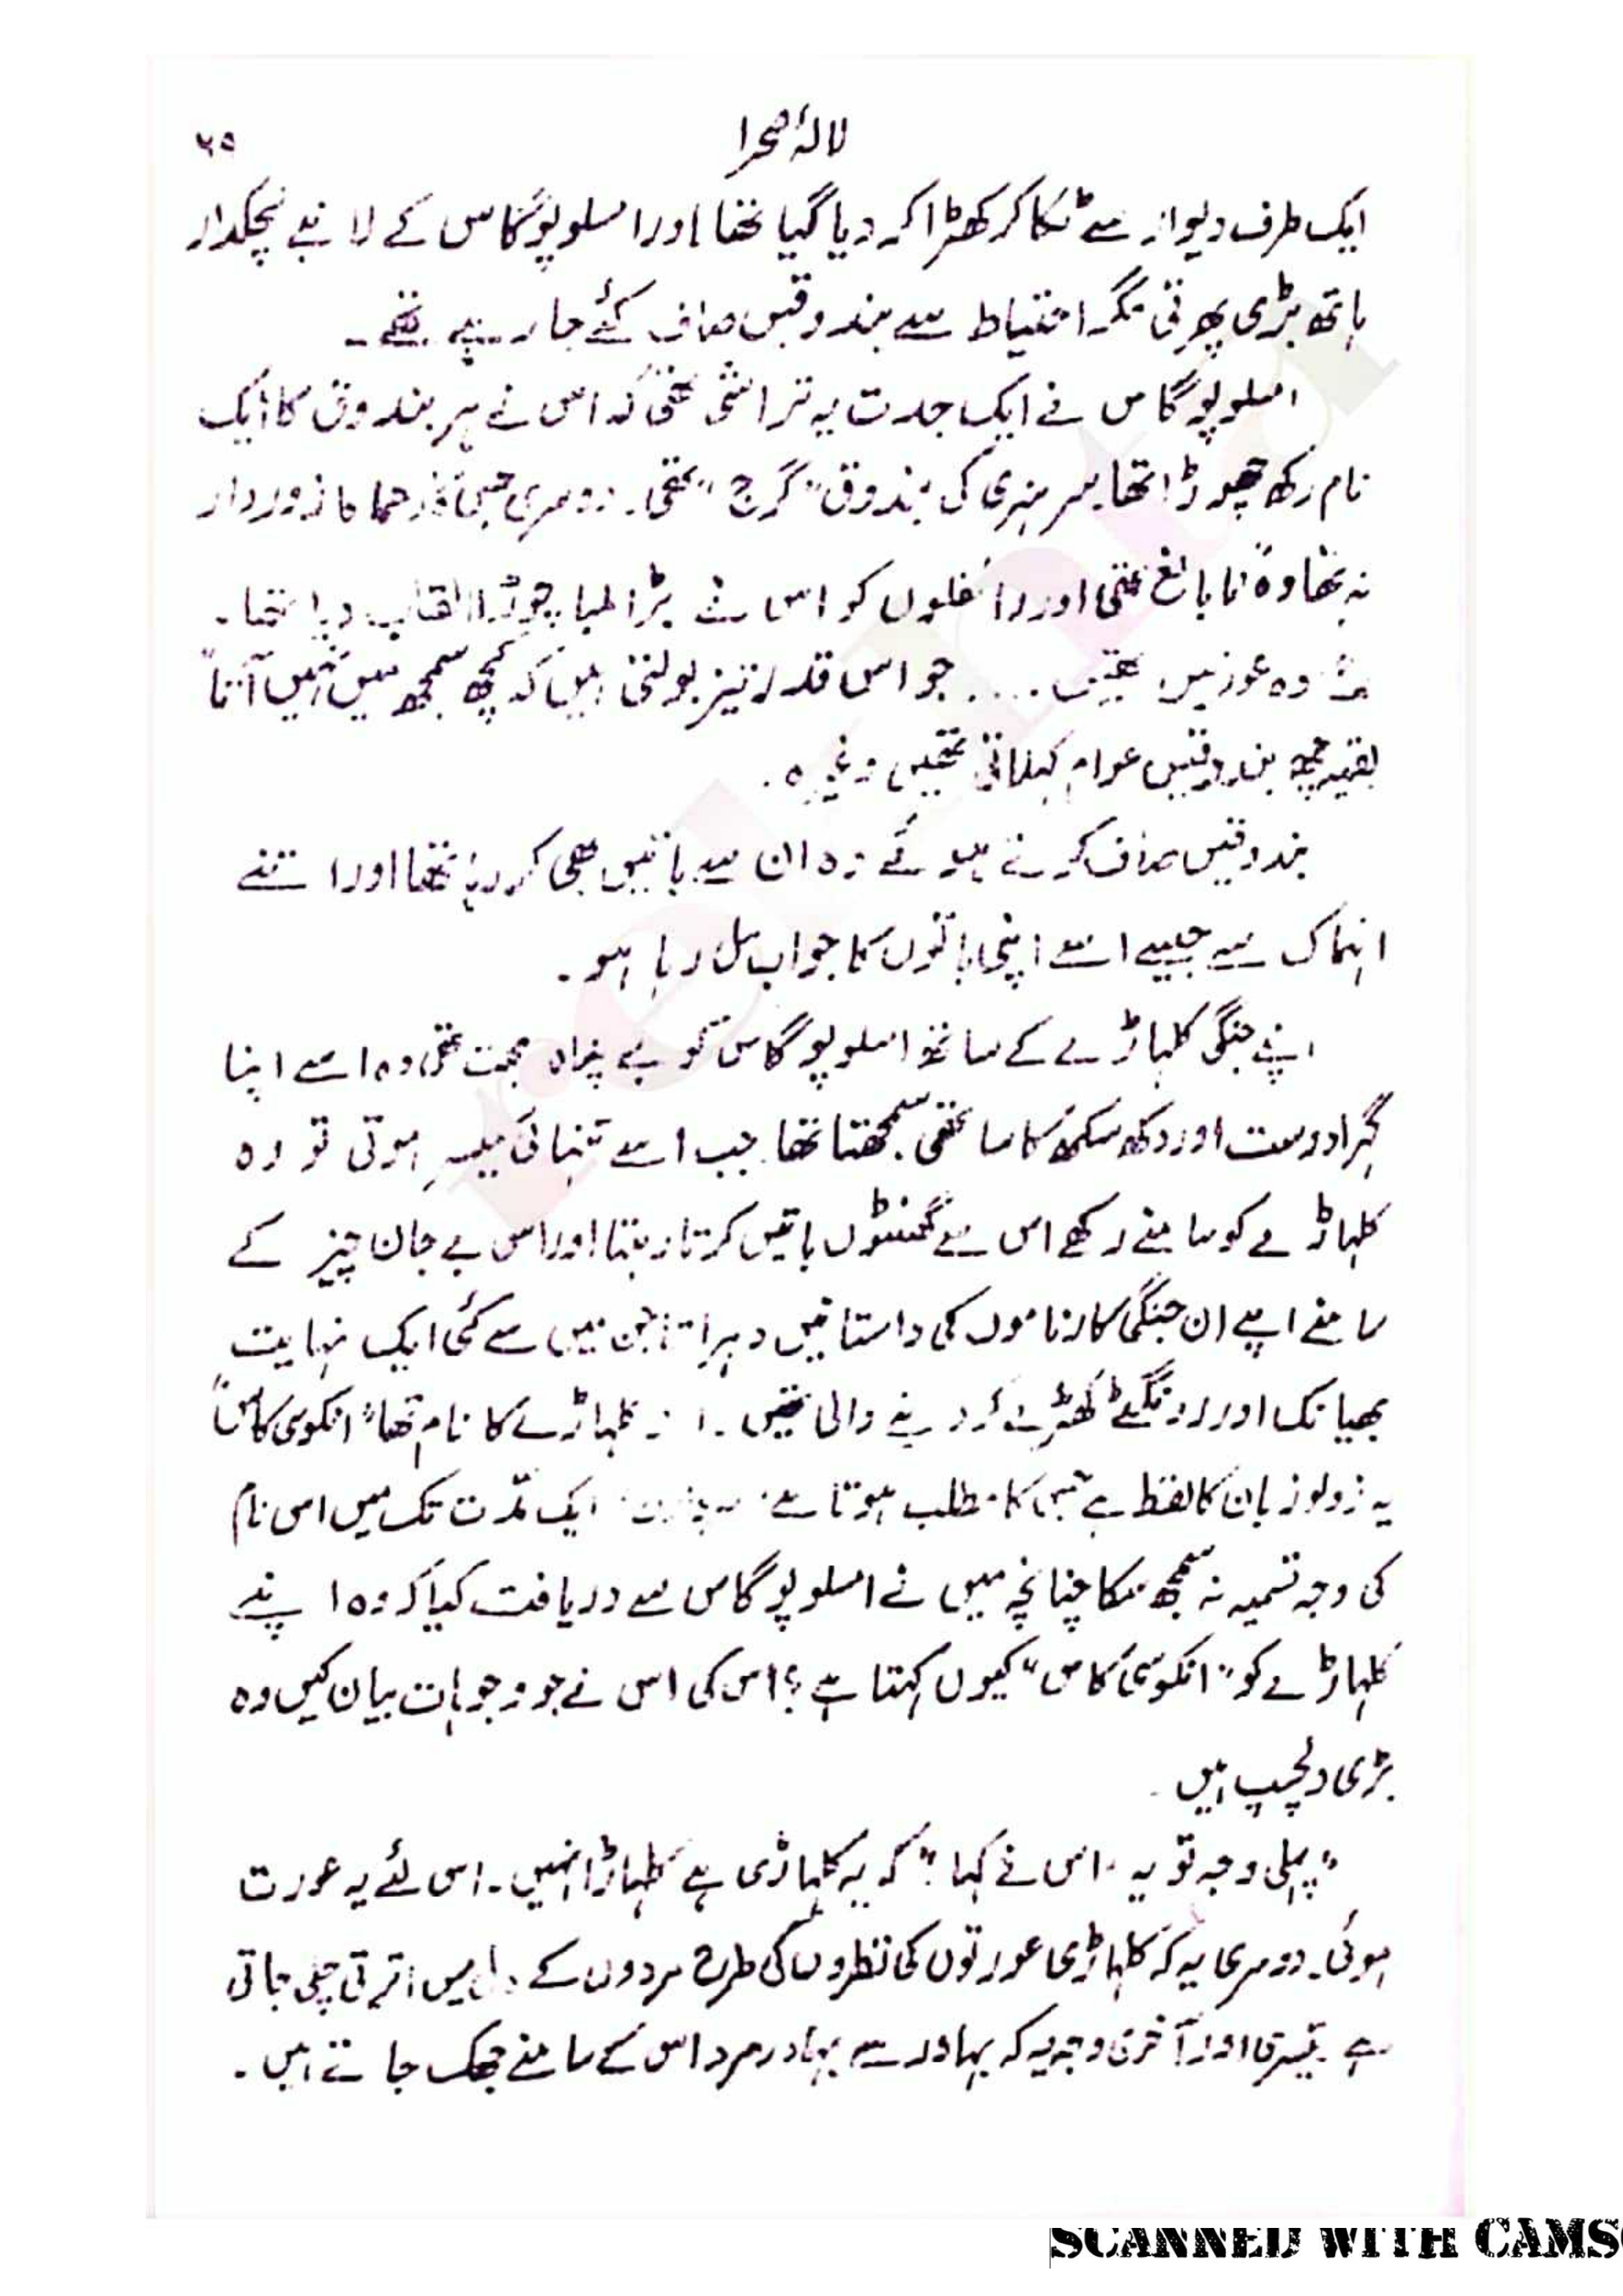 لالۂ صحرا
۲۵
ایک طرف دیوار سے ٹکا کر کھڑا کر دیا گیا تھا اور امسلوپوگاس کے لانبے لچکدار
ہاتھ بڑی پھرتی مگر احتیاط سے بندوقیں صاف کئے جا رہے تھے۔
امسلوپوگاس نے ایک جدت یہ تراشی تھی کہ اس نے ہر بندوق کا ایک
نام رکھ چھوڑا تھا۔ سر ہنری کی بندوق "گرج" تھی۔ دوسری جس کا دھماکا زوردار
نہ تھا وہ "نابالغ" تھی اور رائفلوں کو اس نے بڑا لمبا چوڑا القاب دیا تھا۔
وہ عورتیں تھیں .... جو اس قدر تیز بولتی ہیں کہ کچھ سمجھ میں نہیں آتا"
بقیہ چھ بندوقیں عوام کہلاتی تھیں وغیرہ۔
بندوقیں صاف کرتے ہوئے وہ ان سے باتیں بھی کر رہا تھا اور اتنے
انہماک سے جیسے اسے اپنی باتوں کا جواب مل رہا ہو۔
اپنے جنگی کلہاڑے کے ساتھ امسلوپوگاس کو بے پناہ محبت تھی وہ اسے اپنا
گہرا دوست اور دکھ سکھ کا ساتھی سمجھتا تھا جب اسے تنہائی میسر ہوتی تو وہ
کلہاڑے کو سامنے رکھے اس سے گھنٹوں باتیں کرتا رہتا اور اس بے جان چیز کے
سامنے اپنے ان جنگی کارناموں کی داستانیں دہراتا جن میں سے کئی ایک نہایت
بھیانک اور رونگٹے کھڑے کر دینے والی تھیں۔ اس کلہاڑے کا نام تھا "انکوسی کاس"
یہ زولو زبان کا لفظ ہے جس کا مطلب ہوتا ہے ایک مدت تک میں اس نام
کی وجہ تسمیہ نہ سمجھ سکا چنانچہ میں نے امسلوپوگاس سے دریافت کیا کہ وہ اپنے
کلہاڑے کو "انکوسی کاس" کیوں کہتا ہے؟ اس کی اس نے جو وجوہات بیان کیں وہ
بڑی دلچسپ ہیں۔
"پہلی وجہ تو یہ" اس نے کہا "کہ یہ کلہاڑی ہے کلہاڑا نہیں۔ اس لئے یہ عورت
ہوئی۔ دوسری یہ کہ کلہاڑی عورتوں کی نظروں کی طرح مردوں کے دل میں اترتی چلی جاتی
ہے۔ تیسری اور آخری وجہ یہ کہ بہادر سے بہادر مرد اس کے سامنے جھک جاتے ہیں۔
SCANNED WITH CAMS